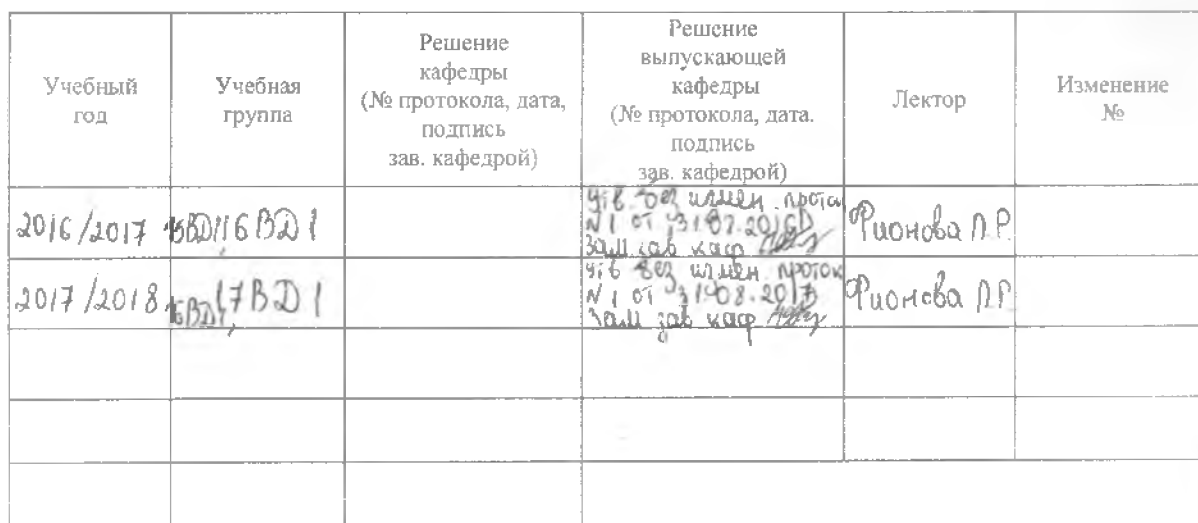 Учебный
год
Учебная
группа
Решение
кафедры
(№ протокола, дата,
подпись
зав. кафедрой)
Решение
выпускающей
кафедры
(№ протокола, дата.
подпись
зав. кафедрой)
Лектор
Изменение
№
2016/2017
16ВD1
утв. без измен. проток
N 1 от 31.08.2016
Зам зав каф
Фионова Л.Р.
2017/2018
16ВD1, 17ВD1
утв без измен. проток
N 1 от 31.08.2017
Зам зав каф
Фионова Л.Р